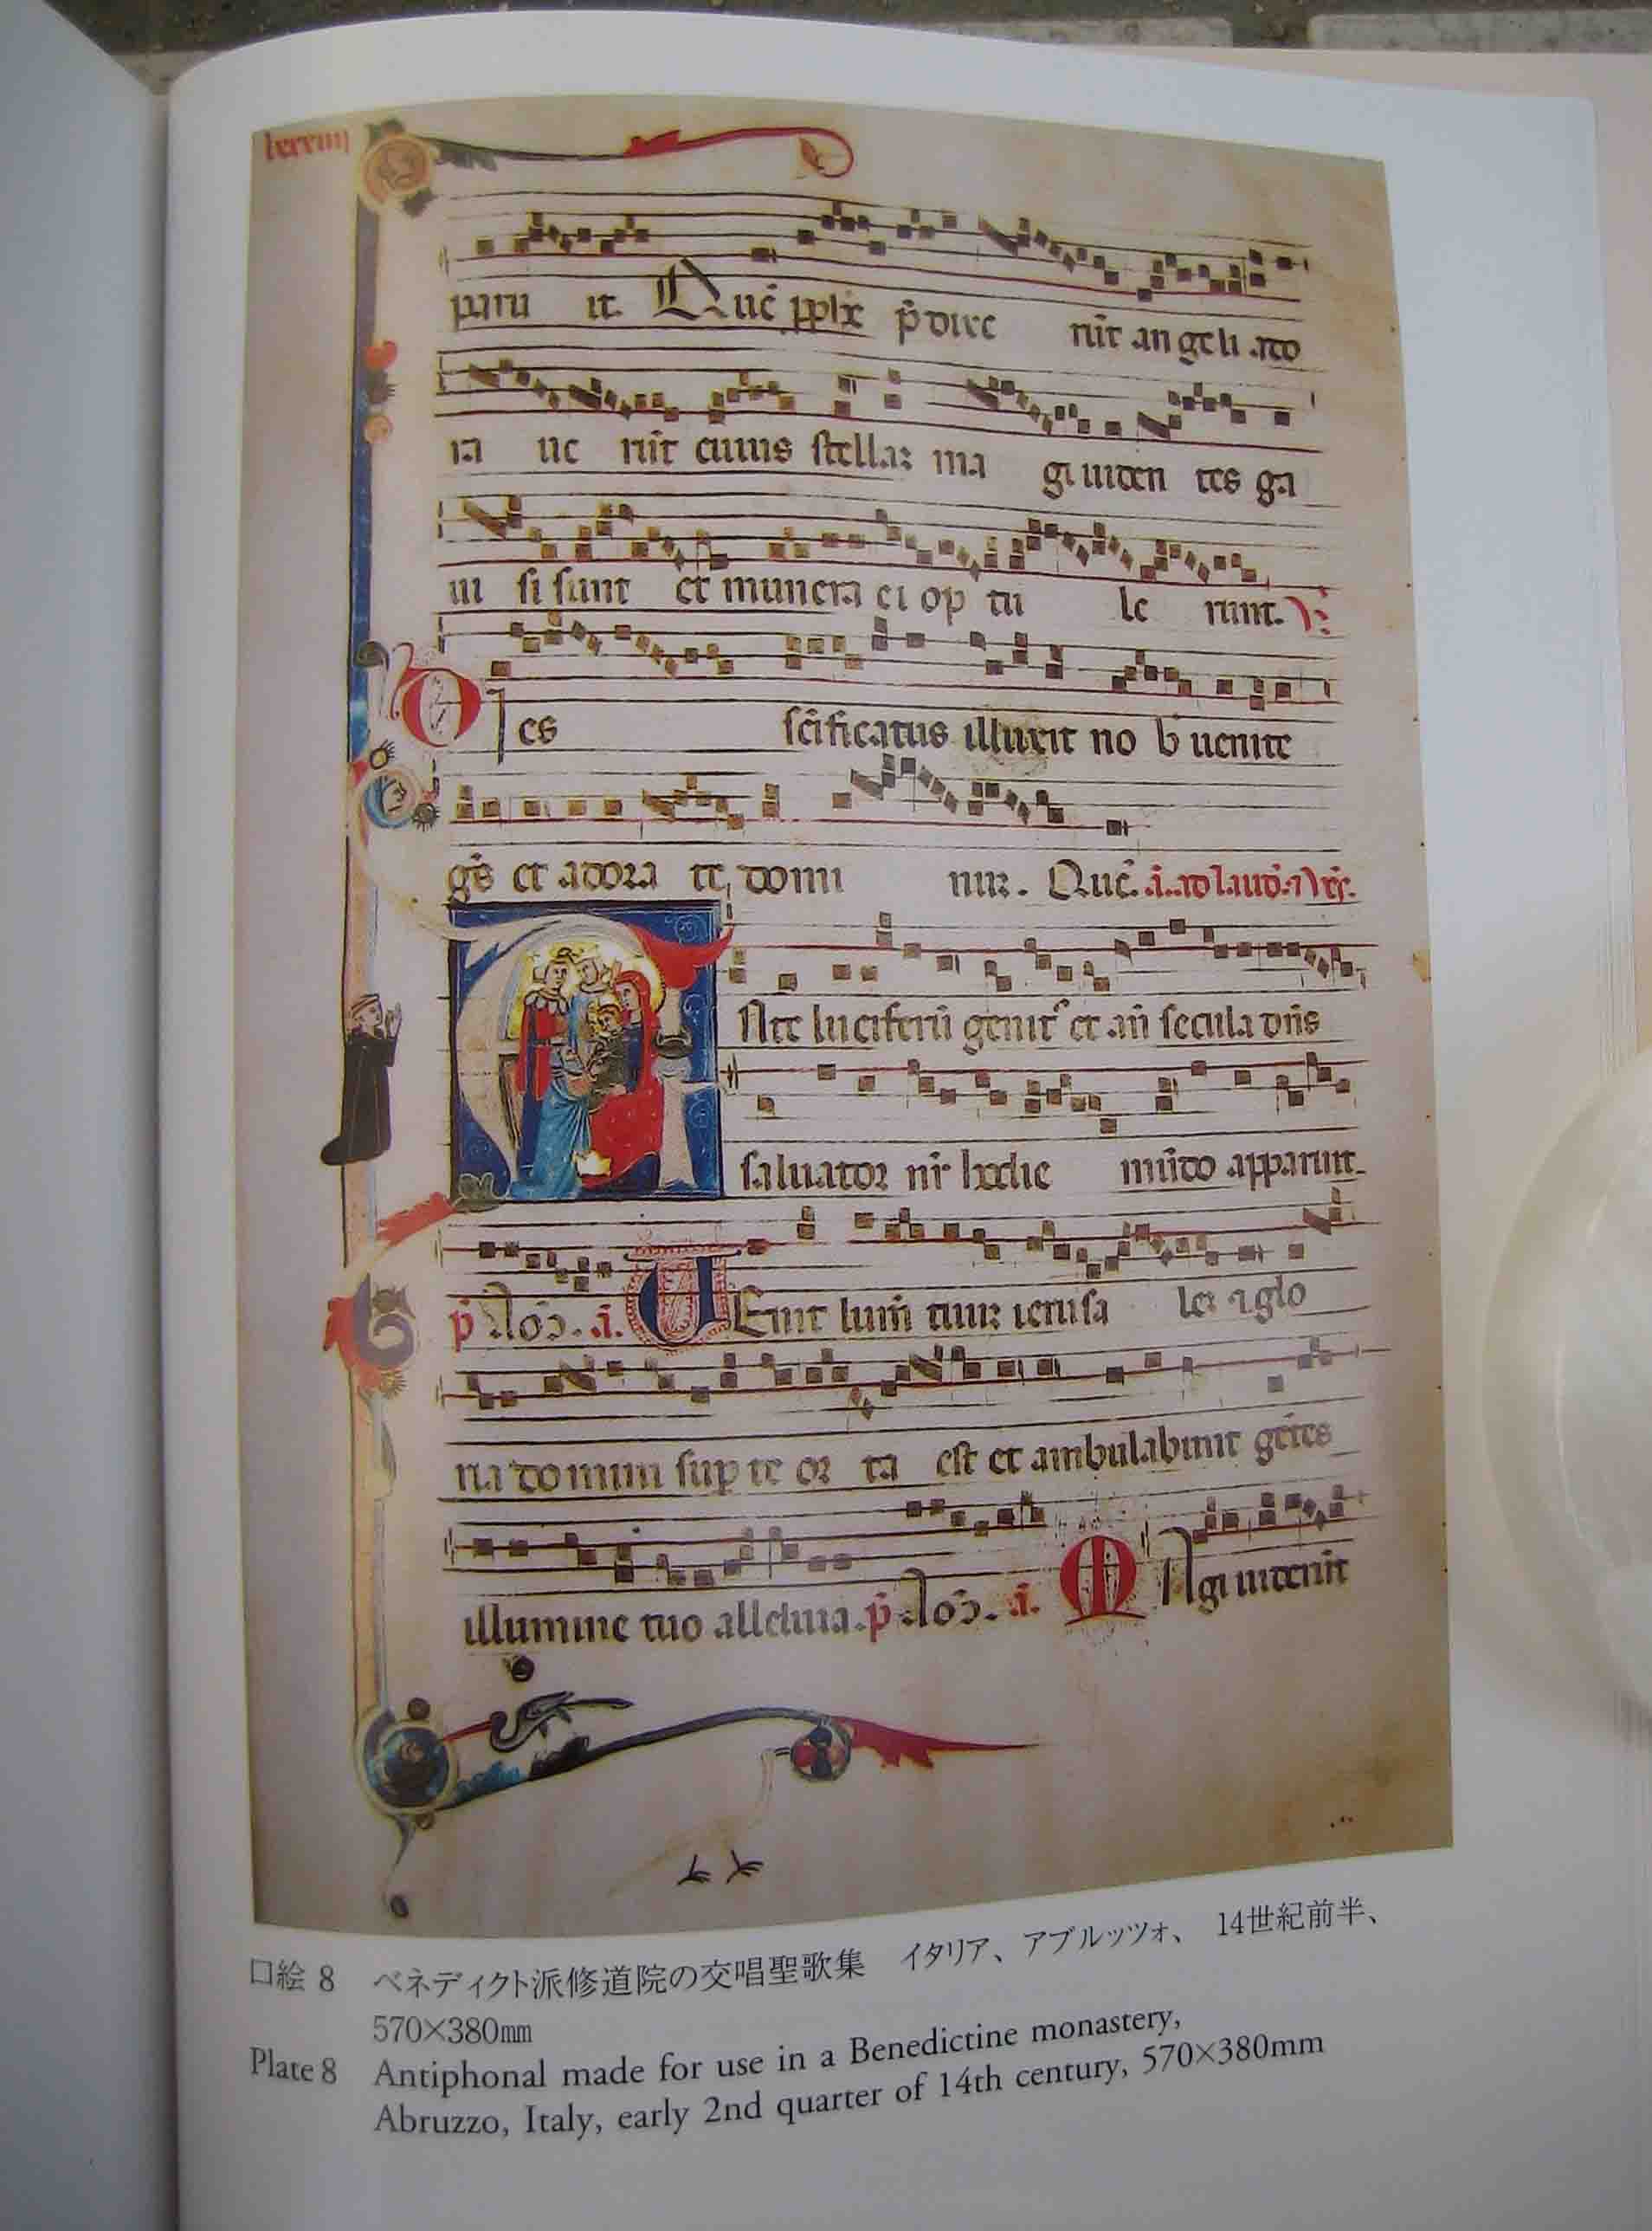 paru it. Quē pplx p̄dixe rūt angeli ado
ra ue rūt cuius stellaꝫ ma gi uiden tes ga
ui si sunt et munera ei op tu le runt.
Di es sc̄ificatus illuxit no b uenite
gēs et adora te domi nuꝫ. Quē. a. ad laud. aƞ.
ANte luciferū genit et an̄ secula dn̄s
saluator nr̄ hodie mūdo apparuit.
p̄. a. UEnit lum̄ tuuꝫ ierusa leꝫ ⁊ glo
ria domini sup te or ta est et ambulabunt gētes
illumine tuo alleluia. p̄. a. MAgi uidenīt
口絵 8 ベネディクト派修道院の交唱聖歌集 イタリア、アブルッツォ、 14世紀前半、
570×380㎜
Plate 8 Antiphonal made for use in a Benedictine monastery,
Abruzzo, Italy, early 2nd quarter of 14th century, 570×380mm